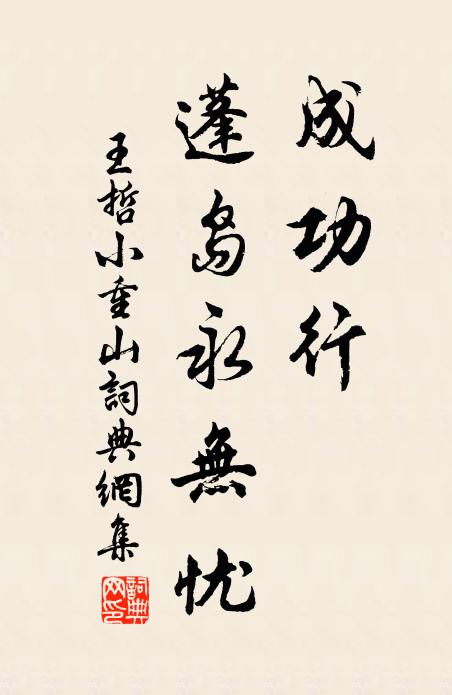 成功行
蓬岛永無忧
王哲小重山詞典網集
詞典网印